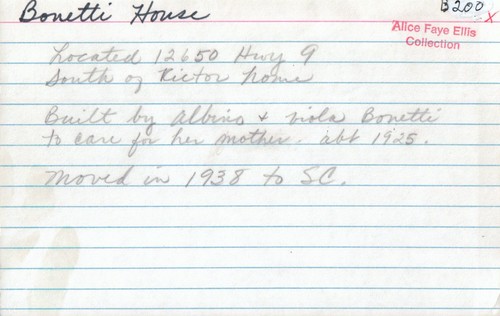 Bonetti House
B200
X
Alice Faye Ellis
Collection
Located 12650 Hwy 9
South of Rictor home
Built by Albino + viola Bonetti
to care for her mother. abt 1925.
Moved in 1938 to SC.